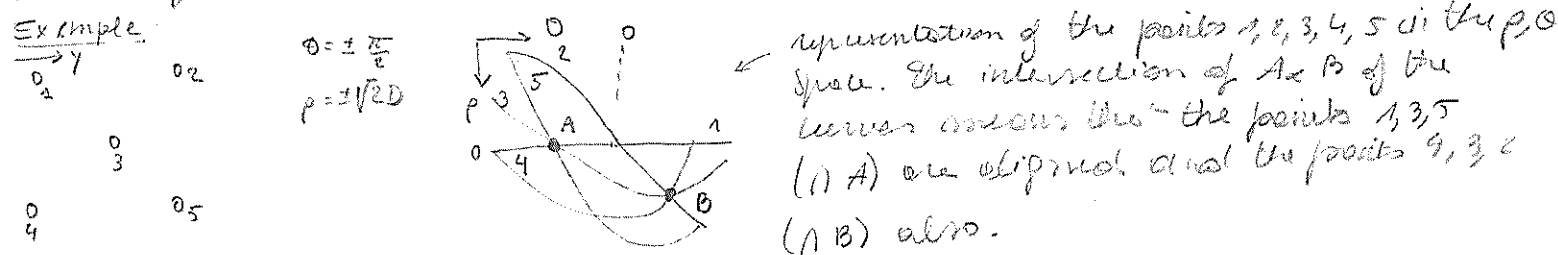 Example
→ y
θ = ± π/2
ρ = ±√2D
1
2
3
4
5
θ
0
ρ
0
2
5
3
4
1
A
B
representation of the points 1, 2, 3, 4, 5 in the ρ, θ
space. The intersection of A & B of the
curves means that the points 1, 3, 5
(∩ A) are aligned and the points 4, 3, 2
(∩ B) also.